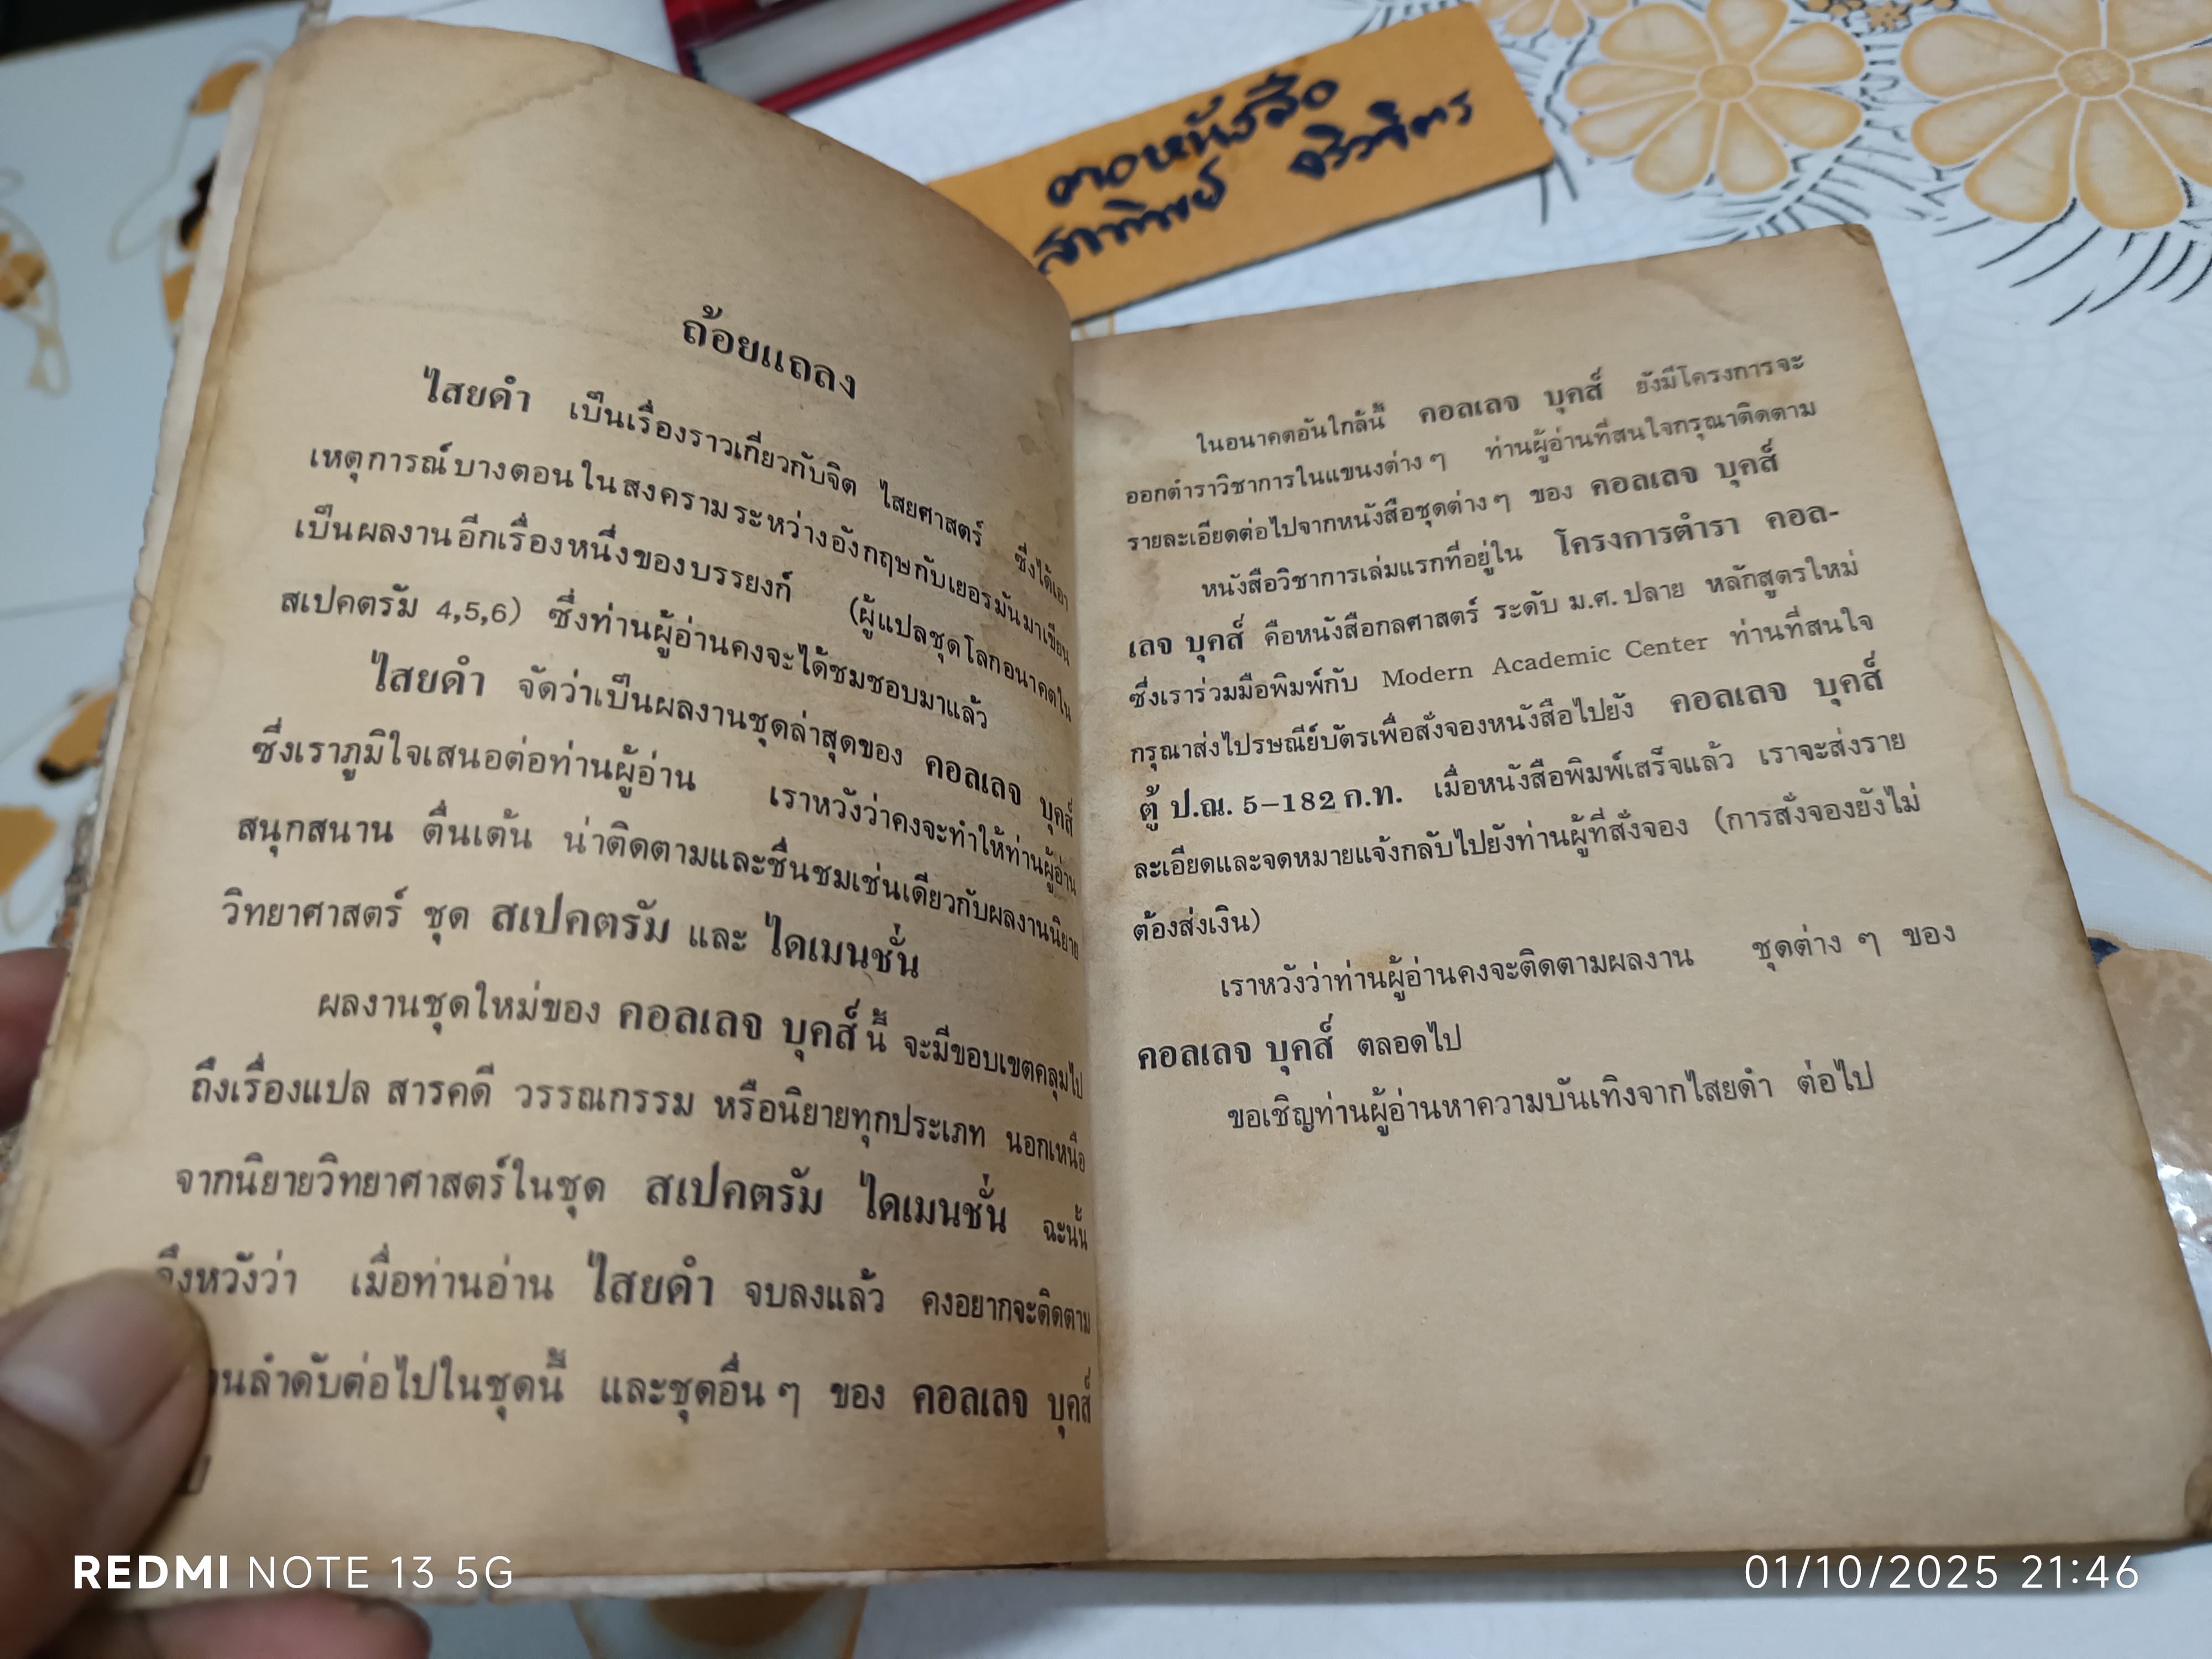 คอหนังสือ
ถ้อยแถลง
ไสยดำ เป็นเรื่องราวเกี่ยวกับจิต ไสยศาสตร์ ซึ่งได้เอา
เหตุการณ์บางตอนในสงครามระหว่างอังกฤษกับเยอรมันมาเขียน
เป็นผลงานอีกเรื่องหนึ่งของบรรยงก์ (ผู้แปลชุดโลกอนาคตใน
สเปคตรัม 4,5,6) ซึ่งท่านผู้อ่านคงจะได้ชมชอบมาแล้ว
ไสยดำ จัดว่าเป็นผลงานชุดล่าสุดของ คอลเลจ บุคส์
ซึ่งเราภูมิใจเสนอต่อท่านผู้อ่าน เราหวังว่าคงจะทำให้ท่านผู้อ่าน
สนุกสนาน ตื่นเต้น น่าติดตามและชื่นชมเช่นเดียวกับผลงานนิยาย
วิทยาศาสตร์ ชุด สเปคตรัม และ ไดเมนชั่น
ผลงานชุดใหม่ของ คอลเลจ บุคส์ นี้ จะมีขอบเขตคลุมไป
ถึงเรื่องแปล สารคดี วรรณกรรม หรือนิยายทุกประเภท นอกเหนือ
จากนิยายวิทยาศาสตร์ในชุด สเปคตรัม ไดเมนชั่น ฉะนั้น
จึงหวังว่า เมื่อท่านอ่าน ไสยดำ จบลงแล้ว คงอยากจะติดตาม
ลำดับต่อไปในชุดนี้ และชุดอื่น ๆ ของ คอลเลจ บุคส์
ในอนาคตอันใกล้นี้ คอลเลจ บุคส์ ยังมีโครงการจะ
ออกตำราวิชาการในแขนงต่าง ๆ ท่านผู้อ่านที่สนใจกรุณาติดตาม
รายละเอียดต่อไปจากหนังสือชุดต่าง ๆ ของ คอลเลจ บุคส์
หนังสือวิชาการเล่มแรกที่อยู่ใน โครงการตำรา คอล-
เลจ บุคส์ คือหนังสือกลศาสตร์ ระดับ ม.ศ. ปลาย หลักสูตรใหม่
ซึ่งเราร่วมมือพิมพ์กับ Modern Academic Center ท่านที่สนใจ
กรุณาส่งไปรษณีย์บัตรเพื่อสั่งจองหนังสือไปยัง คอลเลจ บุคส์
ตู้ ป.ณ. 5-182 ก.ท. เมื่อหนังสือพิมพ์เสร็จแล้ว เราจะส่งราย
ละเอียดและจดหมายแจ้งกลับไปยังท่านผู้ที่สั่งจอง (การสั่งจองยังไม่
ต้องส่งเงิน)
เราหวังว่าท่านผู้อ่านคงจะติดตามผลงาน ชุดต่าง ๆ ของ
คอลเลจ บุคส์ ตลอดไป
ขอเชิญท่านผู้อ่านหาความบันเทิงจากไสยดำ ต่อไป
REDMI NOTE 13 5G
01/10/2025 21:46